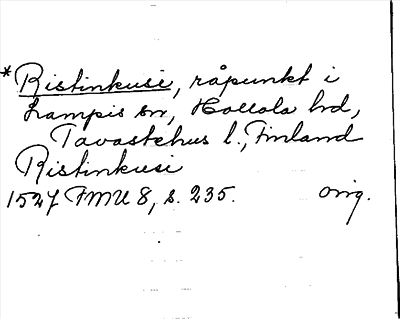 *Ristinkusi, råpunkt i
Lampis sn, Hollola hd,
Tavastehus l., Finland
Ristinkusi
1527 FMU 8, s. 235. orig.